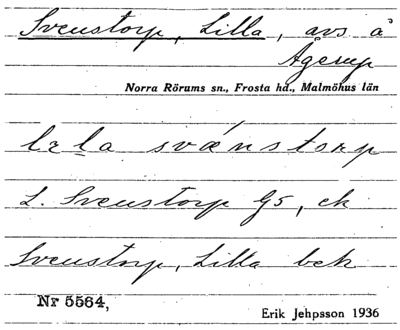 Svenstorp, Lilla, avs å
Ågerup
Norra Rörums sn., Frosta hd., Malmöhus län
lɛla svǽnstorp
L. Svenstorp G5, ek
Svenstorp, Lilla bek
Nr 5564,
Erik Jehpsson 1936